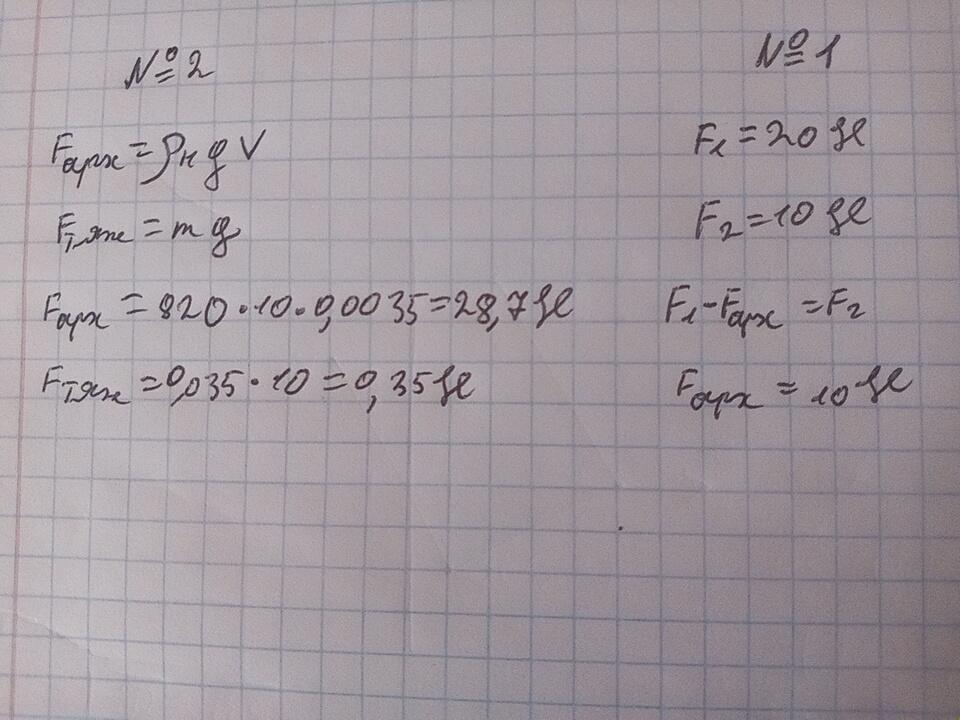 №2
Fарх = ρк g V
Fтяж = m g
Fарх = 820·10·0,0035 = 28,7 H
Fтяж = 0,035·10 = 0,35 H
№1
F1 = 20 H
F2 = 10 H
F1 - Fарх = F2
Fарх = 10 H